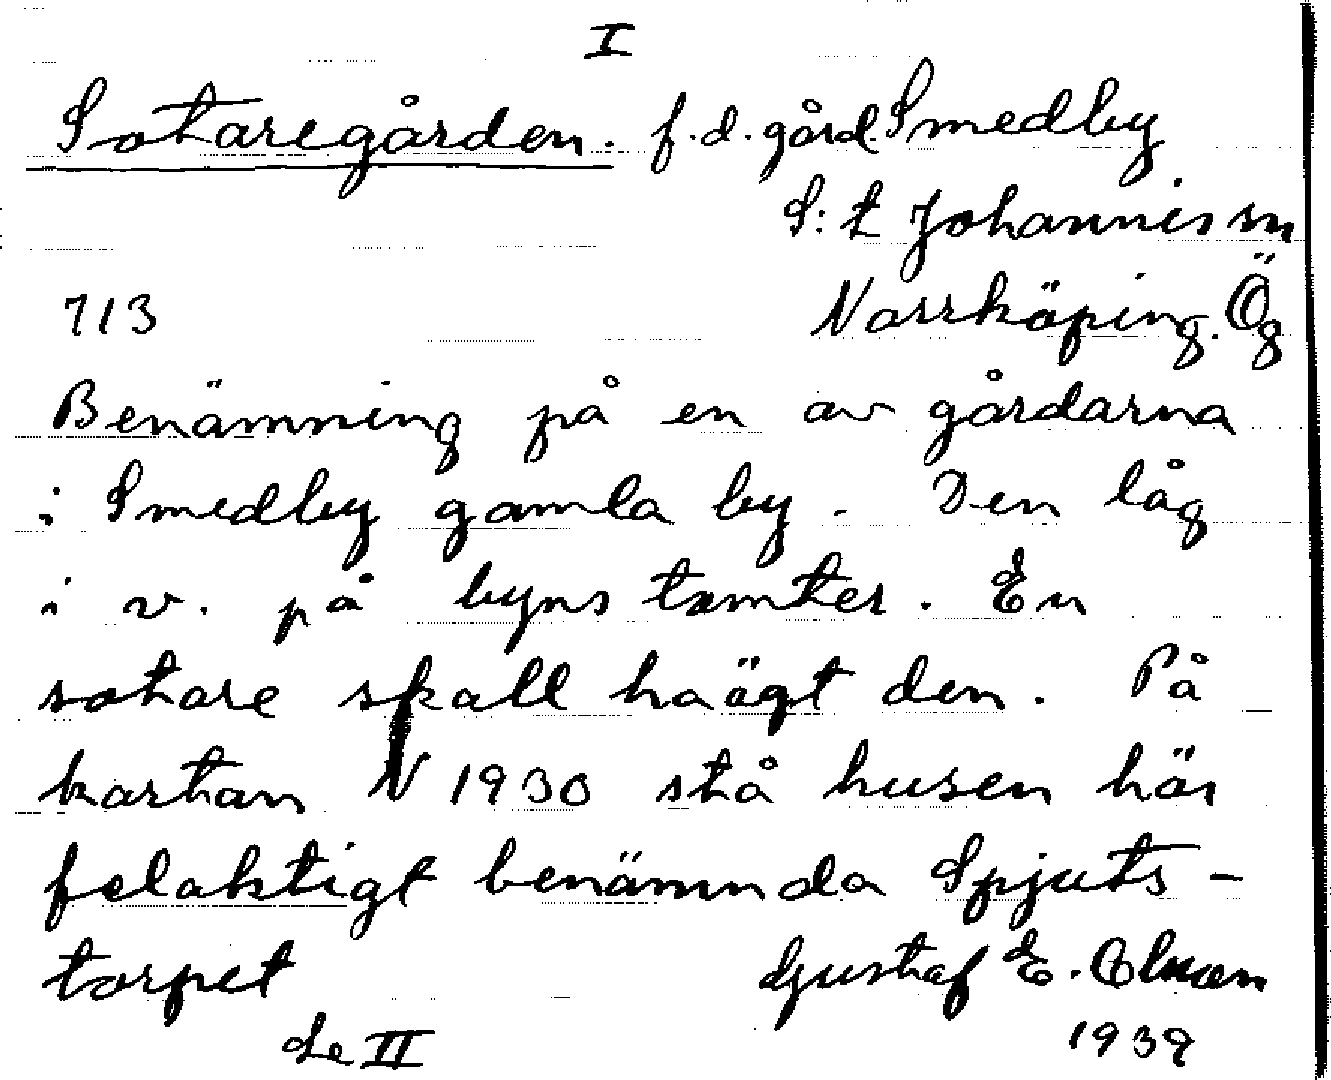 I
Sotaregården. f.d. gård. Smedby
S:t Johannis sn
713 Norrköping. Ög
Benämning på en av gårdarna
i Smedby gamla by. Den låg
i v. på byns tomter. En
sotare skall ha ägt den. På
kartan N 1930 stå husen här
felaktigt benämnda Spjuts-
torpet Gustaf E. Olsson
Se II 1939